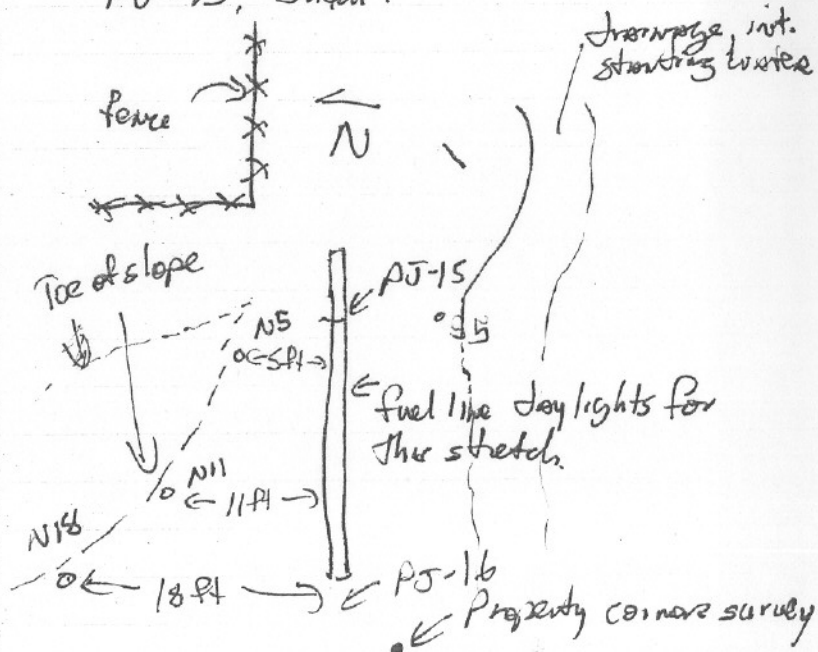 drainage, int.
standing water
fence
N
Toe of slope
PJ-15
N5
S5
5ft
fuel line daylights for
this stretch.
N11
11ft
N18
18 ft
PJ-16
Property corner survey